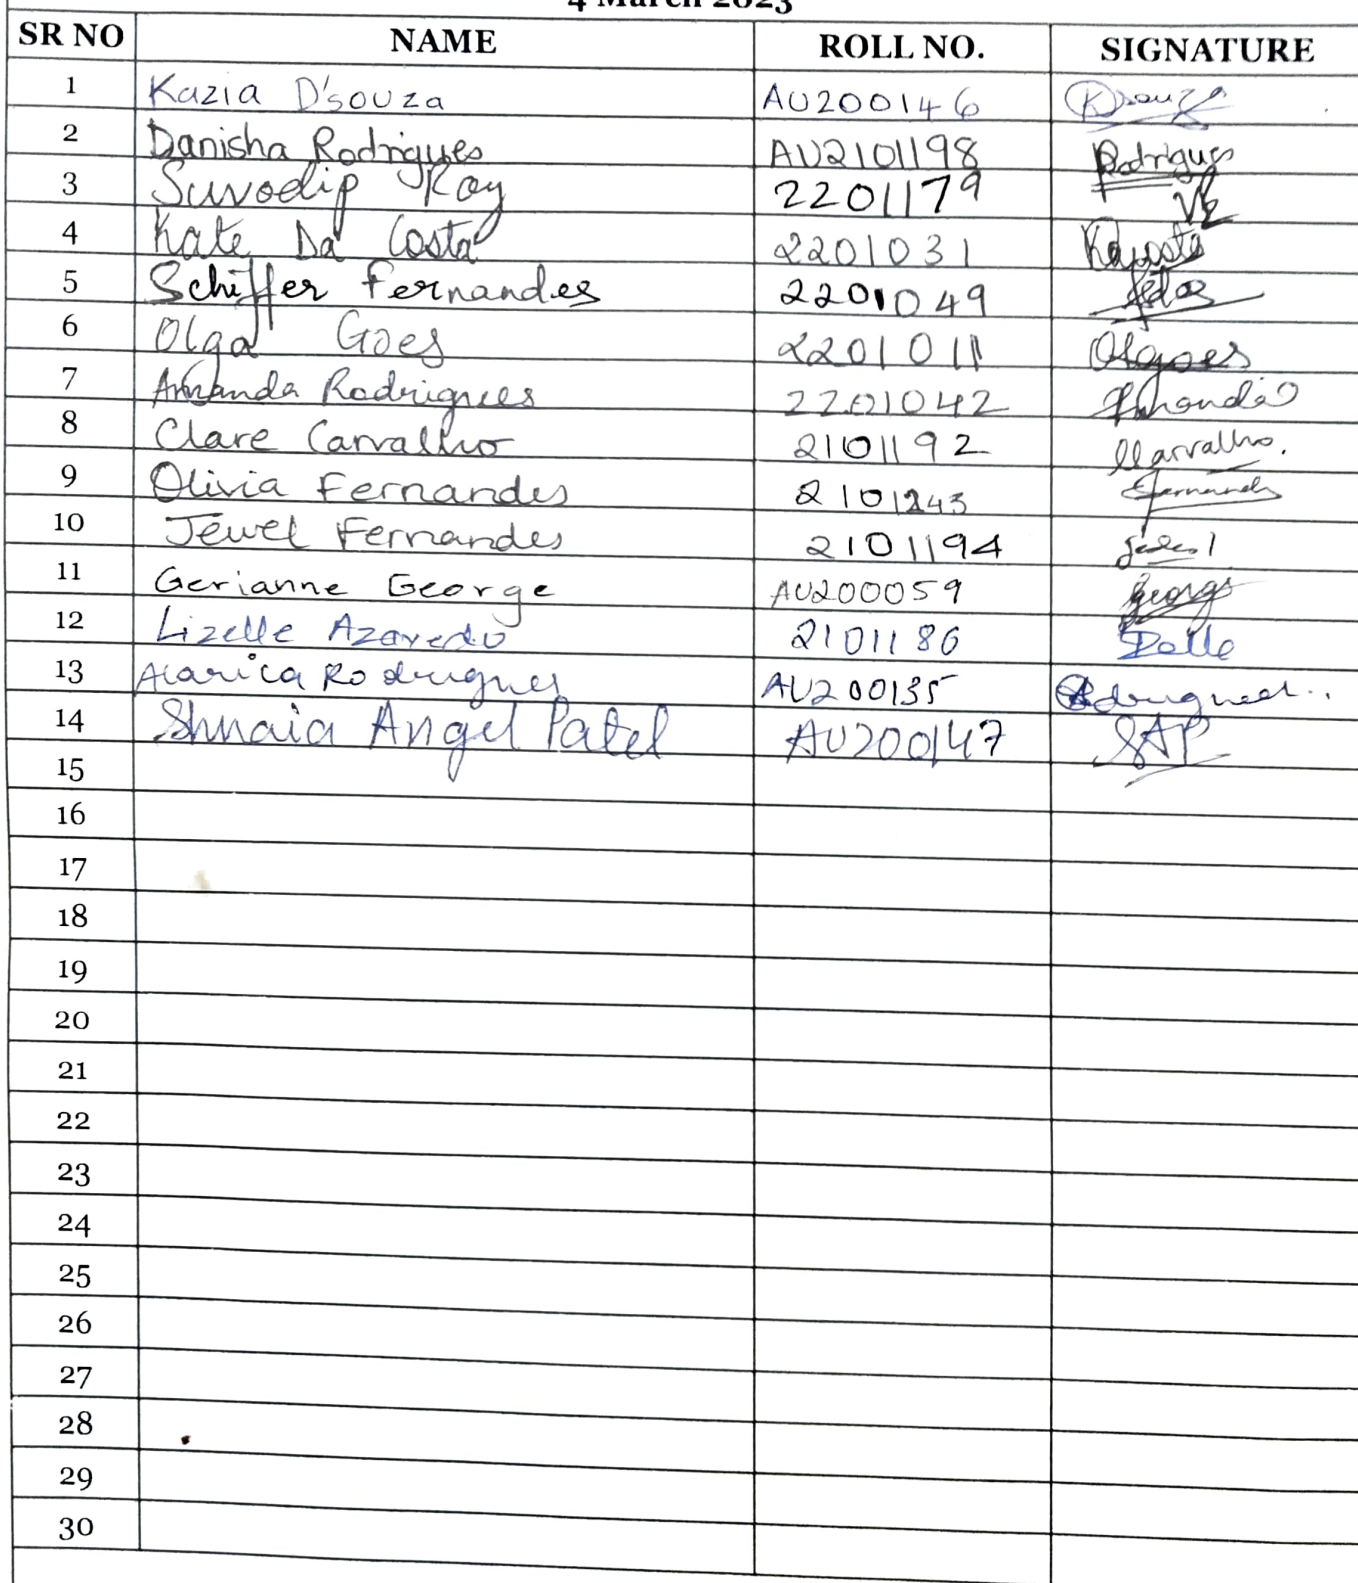 4 March 2023
SR NO NAME ROLL NO. SIGNATURE
1 Kazia D'souza AU200146 KDsouza
2 Danisha Rodrigues AU2101198 Rodrigues
3 Suvodip Roy 2201179
4 Kate Da Costa 2201031
5 Schiffer Fernandes 2201049
6 Olga Goes 2201011 Olgoes
7 Amanda Rodrigues 2201042 Amanda
8 Clare Carvalho 2101192 CCarvalho.
9 Olivia Fernandes 2101243 Fernandes
10 Jewel Fernandes 2101194
11 Gerianne George AU200059 George
12 Lizelle Azavedo 2101186
13 Alarica Rodrigues AU200135
14 Shnaia Angel Patel AU200147 SAP
15
16
17
18
19
20
21
22
23
24
25
26
27
28
29
30